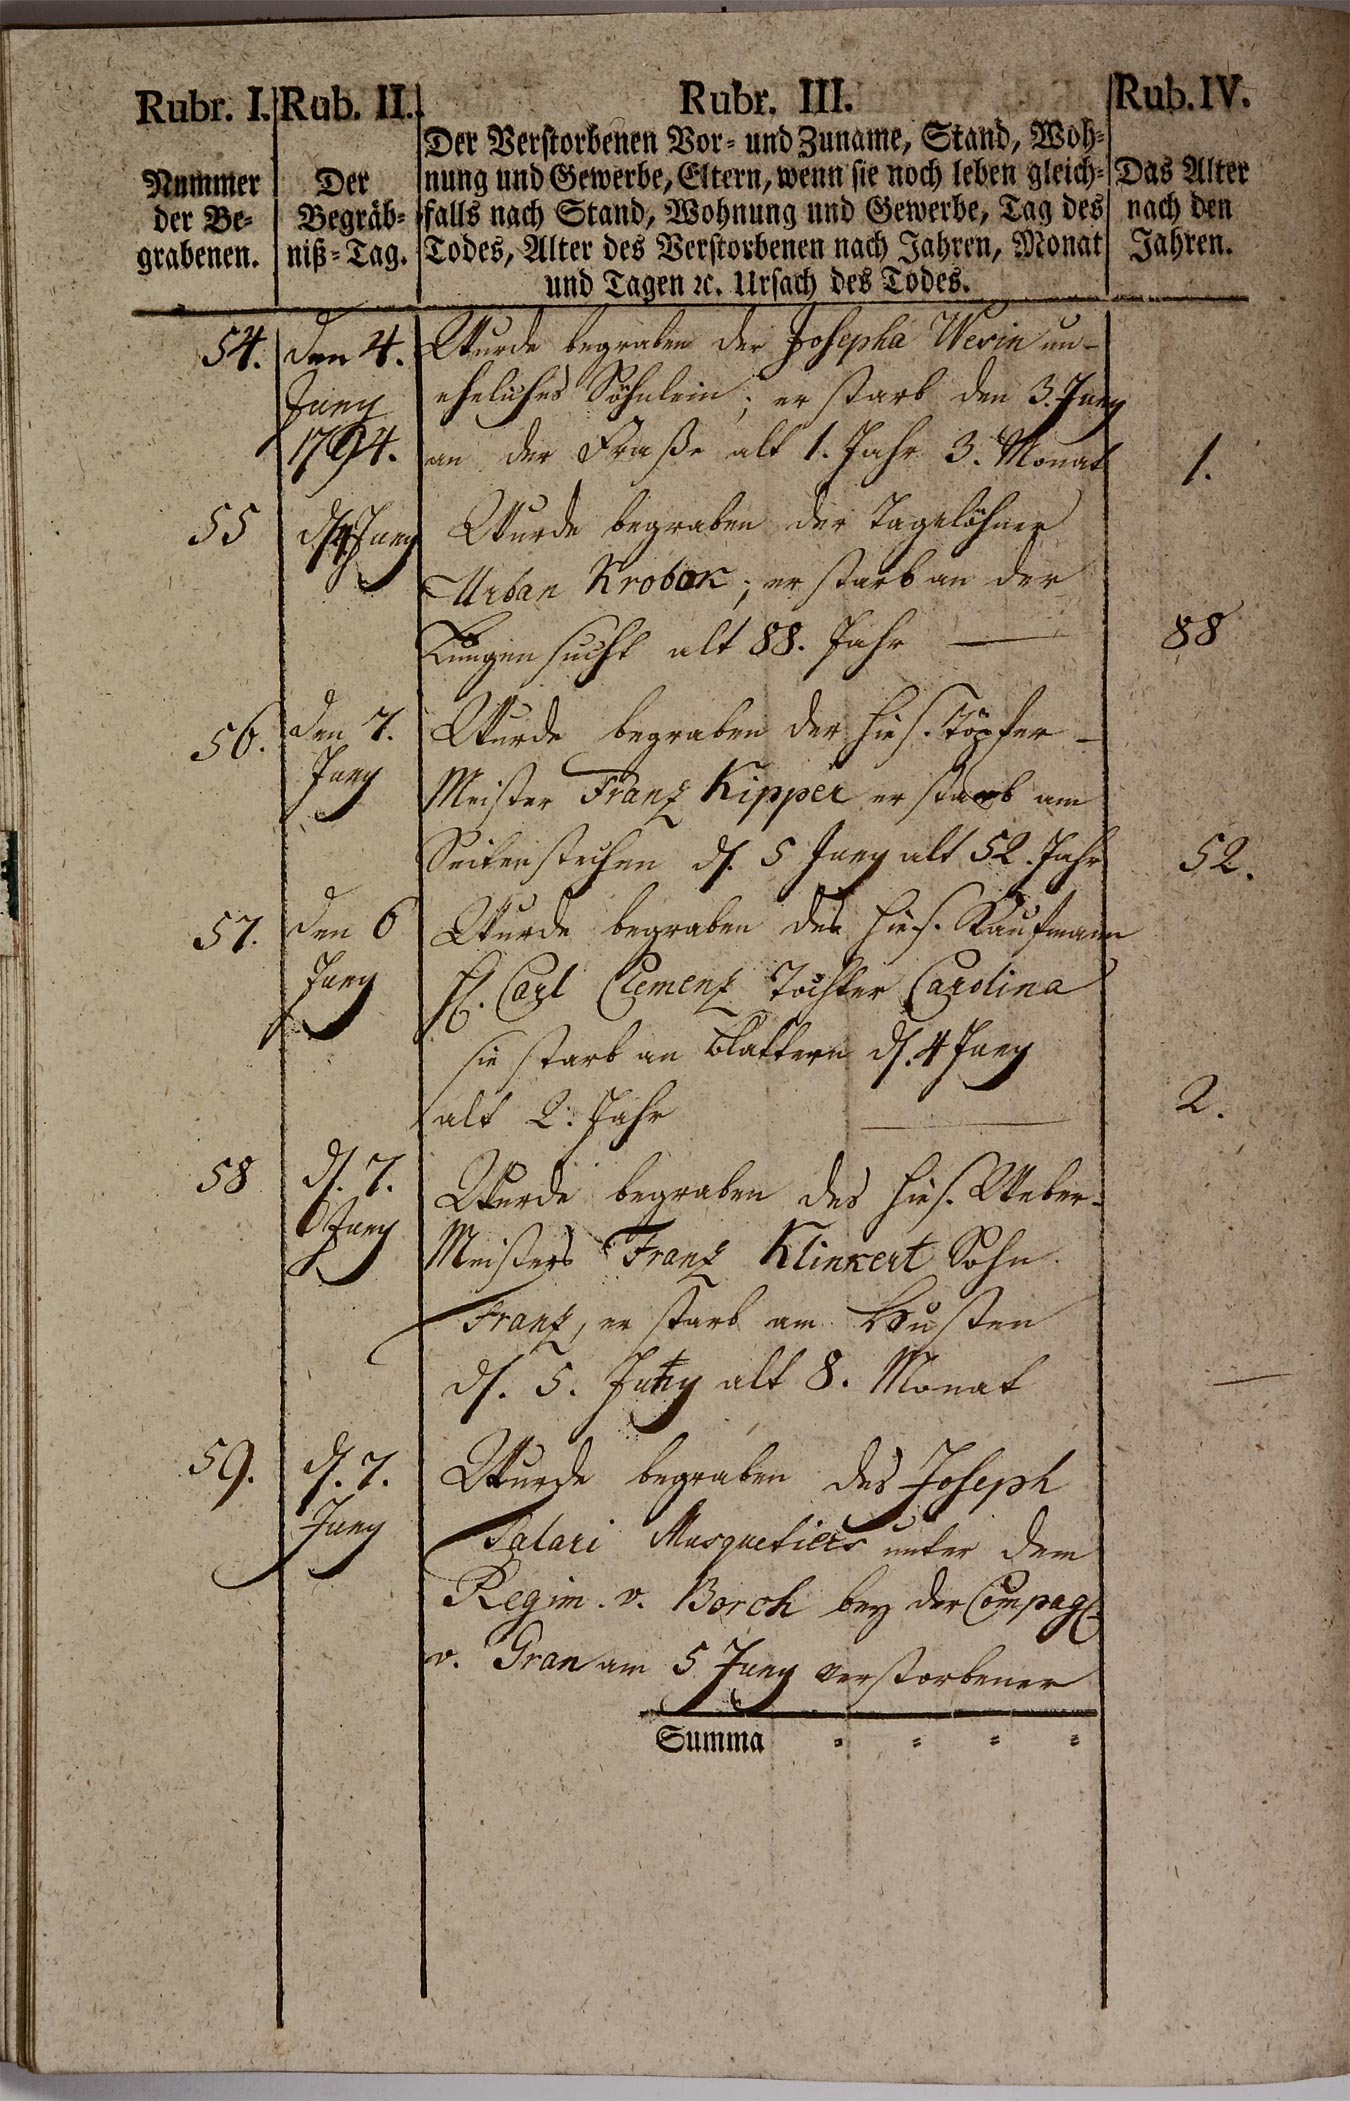 Rubr. I.
Nummer
der Be-
grabenen.
Rub. II.
Der
Begräb-
niß-Tag.
Rubr. III.
Der Verstorbenen Vor- und Zuname, Stand, Woh-
nung und Gewerbe, Eltern, wenn sie noch leben gleich-
falls nach Stand, Wohnung und Gewerbe, Tag des
Todes, Alter des Verstorbenen nach Jahren, Monat
und Tagen ꝛc. Ursach des Todes.
Rub. IV.
Das Alter
nach den
Jahren.
54.
den 4.
Juny
1794.
Wurde begraben der Josepha Werin un-
eheliches Söhnlein; er starb den 3. Juny
an der Fraße alt 1. Jahr 3. Monat
1.
55
d. 4 Juny
Wurde begraben der Tagelöhner
Urban Krobok; er starb an der
Lungensucht alt 88. Jahr —
88
56.
den 7.
Juny
Wurde begraben der hies. Töpfer-
Meister Franz Kipper er starb am
Seitenstechen d. 5 Juny alt 52. Jahr
52.
57.
den 6
Juny
Wurde begraben des hies. Kaufmann
H. Carl Clemenz Tochter Carolina
sie starb an Blattern d. 4 Juny
alt 2. Jahr —
2.
58
d. 7.
Juny
Wurde begraben des hies. Weber-
Meisters Franz Klinkert Sohn
Franz, er starb am Husten
d. 5. Juny alt 8. Monat
—
59.
d. 7.
Juny
Wurde begraben des Joseph
Salari Musquetiers unter dem
Regim. v. Borch bey der Compag.
v. Gran am 5 Juny verstorbener
Summa - - - -